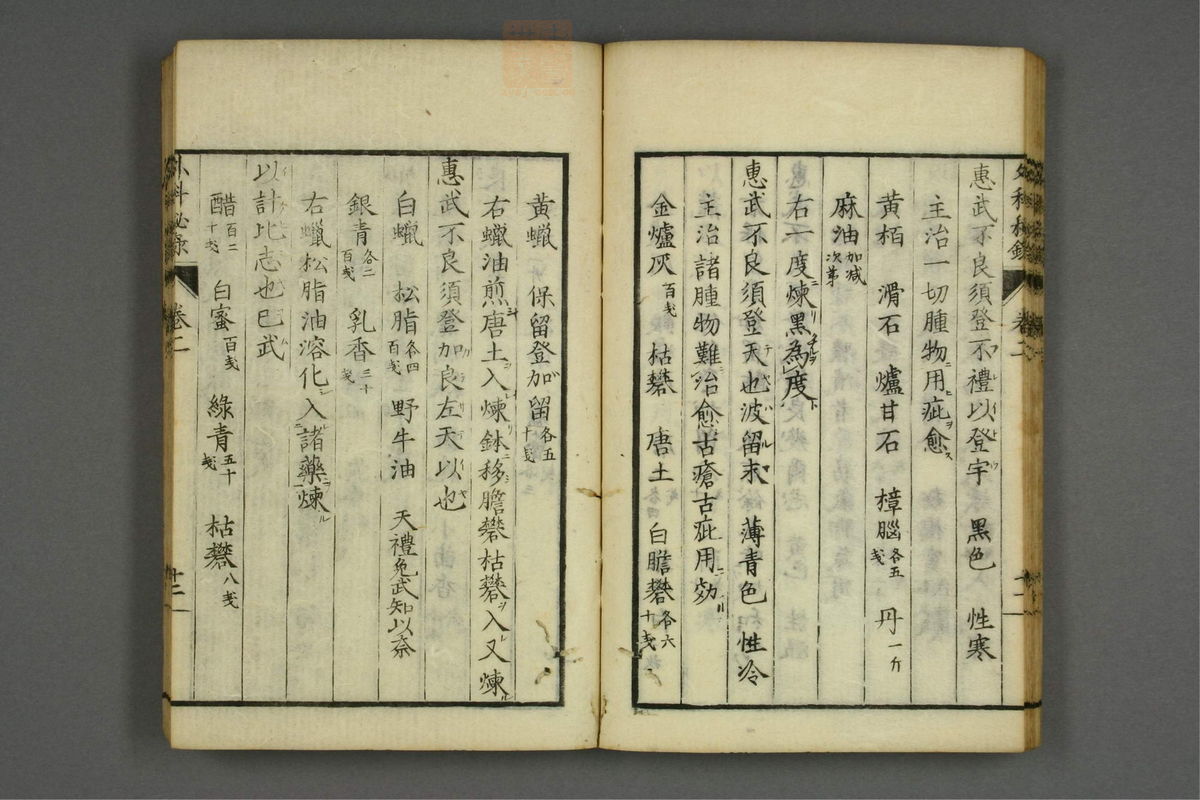 惠武不良須登不禮以登宇　黑色　性寒
主治一切腫物用疵愈
黄栢　滑石　爐甘石　樟腦各五戔　丹一斤
麻油加减次第
右一度煉黑為度
惠武不良須登天也波留末　薄青色　性冷
主治諸腫物難治愈古瘡古疵用効
金爐灰百戔　枯礬　唐土　白膽礬各六十戔
外科秘錄　卷二　十二
黄蠟　保留登加留各五十戔
右蠟油煎唐土入煉鉢移膽礬枯礬入又煉
惠武不良須登加良左天以也
白蠟　松脂各四百戔　野牛油　天禮免武知以奈
銀青各二百戔　乳香三十戔
右蠟松脂油溶化入諸藥煉
以計比志也巳武
醋百二十戔　白蜜百戔　綠青五十戔　枯礬八戔
外科秘录　卷二　十二